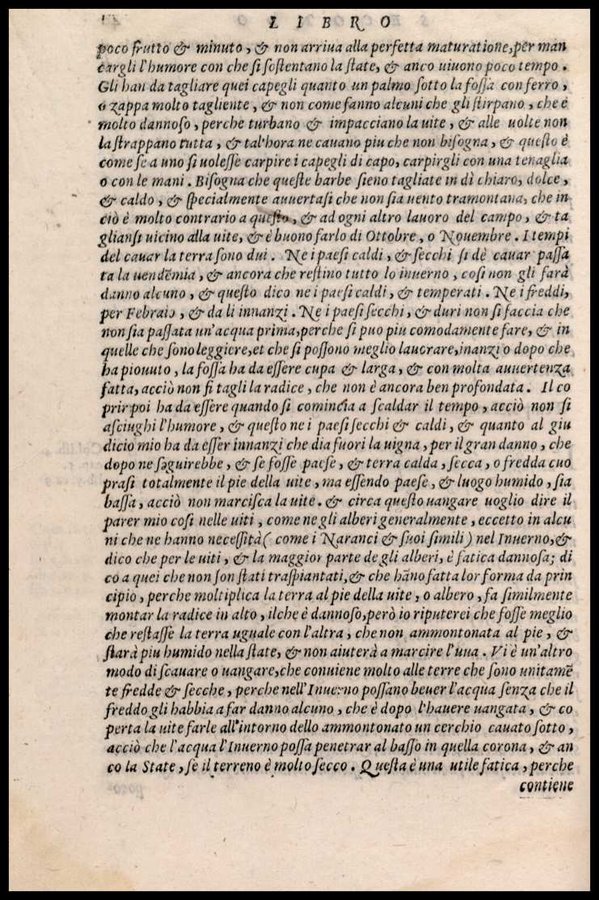 LIBRO
poco frutto & minuto, & non arriva alla perfetta maturatione, per man
cargli l'humore con che si sostentano la state, & anco uiuono poco tempo.
Gli han da tagliare quei capegli quanto un palmo sotto la fossa con ferro,
o zappa molto tagliente, & non come fanno alcuni che gli stirpano, che è
molto dannoso, perche turbano & impacciano la uite, & alle uolte non
la strappano tutta, & tal'hora ne cauano piu che non bisogna, & questo è
come se a uno si uolesse carpire i capegli di capo, carpirgli con una tenaglia
o con le mani. Bisogna che queste barbe sieno tagliate in dì chiaro, dolce,
& caldo, & specialmente auuertasi che non sia uento tramontana, che in
ciò è molto contrario a questo, & ad ogni altro lauoro del campo, & ta
gliansi uicino alla uite, & è buono farlo di Ottobre, o Nouembre. I tempi
del cauar la terra sono dui. Ne i paesi caldi, & secchi si dè cauar passa
ta la uendemia, & ancora che restino tutto lo inuerno, cosi non gli farà
danno alcuno, & questo dico ne i paesi caldi, & temperati. Ne i freddi,
per Febraio, & da li innanzi. Ne i paesi secchi, & duri non si faccia che
non sia passata un'acqua prima, perche si puo piu comodamente fare, & in
quelle che sono leggiere, et che si possono meglio lauorare, inanzi o dopo che
ha piouuto, la fossa ha da essere cupa & larga, & con molta auuertenza
fatta, acciò non si tagli la radice, che non è ancora ben profondata. Il co
prir poi ha da essere quando si comincia a scaldar il tempo, acciò non si
asciughi l'humore, & questo ne i paesi secchi & caldi, & quanto al giu
dicio mio ha da esser innanzi che dia fuori la uigna, per il gran danno, che
dopo ne seguirebbe, & se fosse paese, & terra calda, secca, o fredda cuo
prasi totalmente il pie della uite, ma essendo paese, & luogo humido, sia
bassa, acciò non marcisca la uite. & circa questo uangare uoglio dire il
parer mio cosi nelle uiti, come ne gli alberi generalmente, eccetto in alcu
ni che ne hanno necessità (come i Naranci & suoi simili) nel Inuerno, &
dico che per le uiti, & la maggior parte de gli alberi, è fatica dannosa; di
co a quei che non son stati traspiantati, & che hãno fatta lor forma da prin
cipio, perche moltiplica la terra al pie della uite, o albero, fa similmente
montar la radice in alto, ilche è dannoso, però io riputerei che fosse meglio
che restasse la terra uguale con l'altra, che non ammontonata al pie, &
starà piu humido nella state, & non aiuterà a marcire l'una. Vi è un'altro
modo di scauare o uangare, che conuiene molto alle terre che sono unitamẽ
te fredde & secche, perche nell'Inuerno possano beuer l'acqua senza che il
freddo gli habbia a far danno alcuno, che è dopo l'hauere uangata, & co
perta la uite farle all'intorno dello ammontonato un cerchio cauato sotto,
acciò che l'acqua l'Inuerno possa penetrar al basso in quella corona, & an
co la State, se il terreno è molto secco. Questa è una utile fatica, perche
contiene